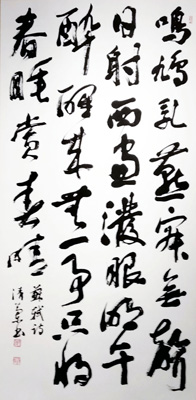 鳴鳩乳燕寂無聲
日射西窗潑眼明午
醉醒來無一事只將
春睡賞春晴
蘇軾詩
清書